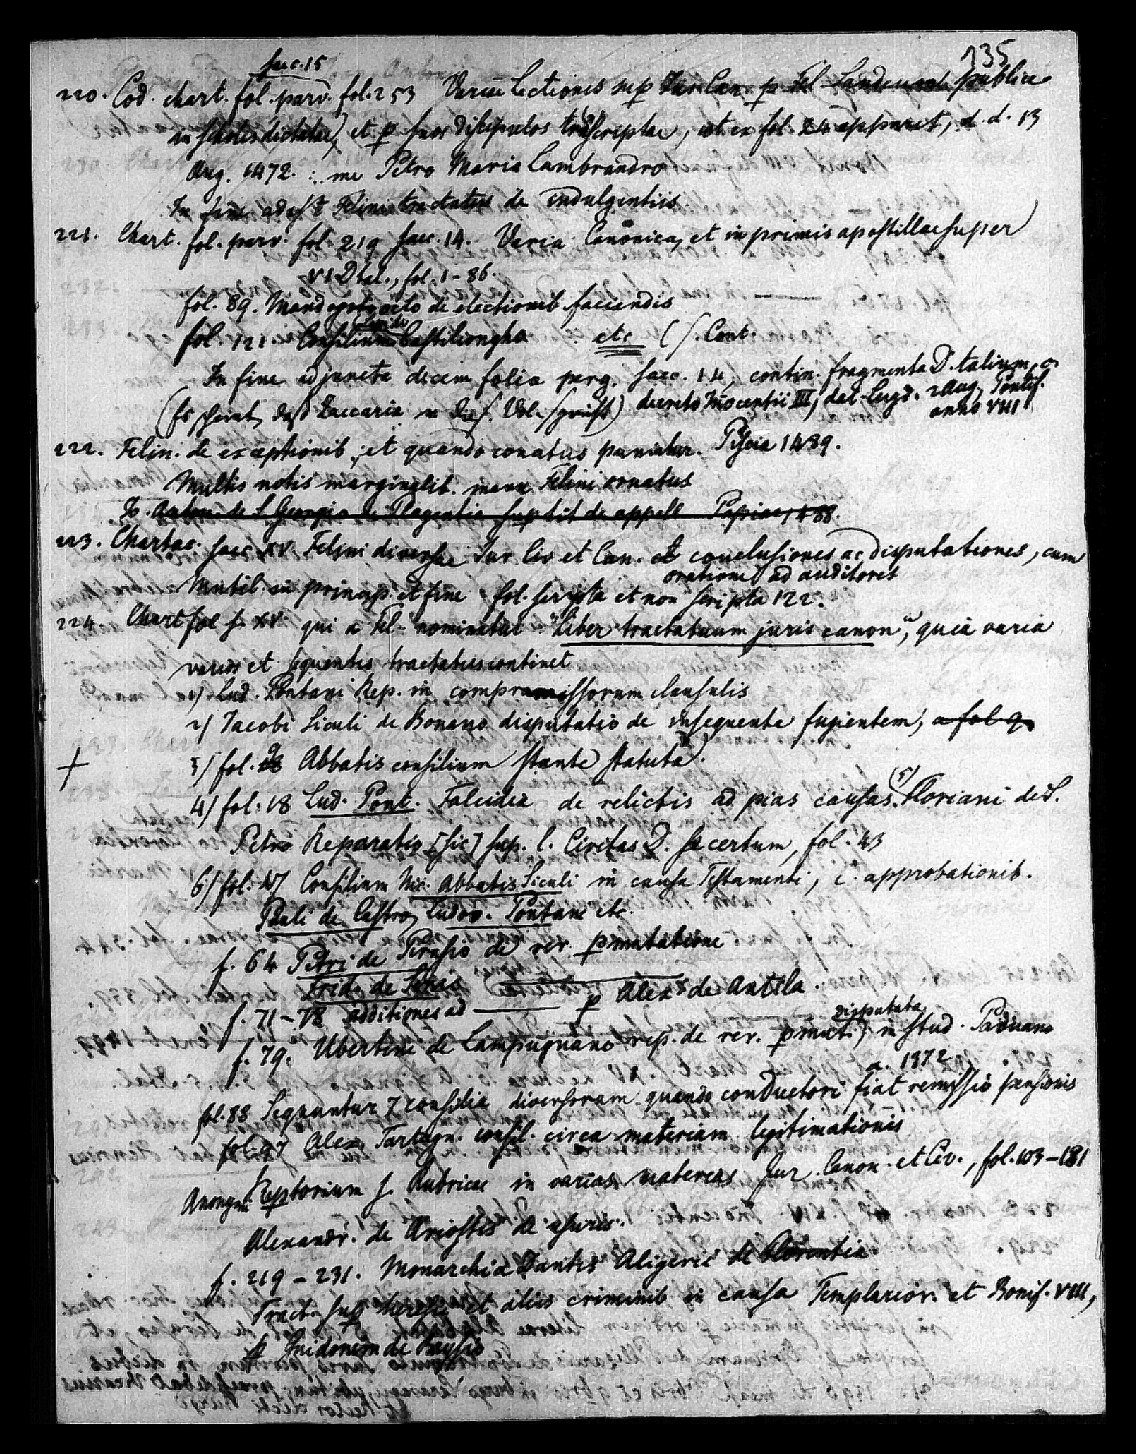 135
saec. 15
220. Cod. chart. fol. parv. fol. 253 Variae Lectiones sup Jus Can. p Fel publice
in scholis dictatae, et p suos discipulos transcriptae, ut ex fol. 24 apparet, d. d. 13
Aug. 1472 : me Petro Maria Lambrandro
In fine adest Felini tractatus de indulgentiis
221. Chart. fol. parv. fol. 219 saec. 14. Varia Canonica, et in primis apostillae super
VI Dcal., fol. 1-86
fol. 89. Mandagoti de electionib faciendis
fol. 121 Consilium Castilionaha etc (s. Cont.
In fine adjuncta decem folia perg. saec. 14, contin. fragmenta D.talium, c.
(Es scheint, dass Zaccaria in) decreto Inocentii III, dat. Lugd. 2 Aug. Pontif.
anno VIII
222. Felin. de exceptionib, et quando conatus puniatur. Pisciae 1489.
Multis notis marginalib. manu Felini ornatus
Jo. Anton. de S Georgio de Placentia sup tit. de appell. Papiae, 1488.
223. Chartac. saec. XV. Felini diversae Jur Civ et Can. conclusiones ac disputationes, cum
orationi ad auditores
Mutil. in princip. et fine. fol. scripta et non scripta 122.
224. Chart fol s. XV. qui a Fel. nominatur "Liber tractatuum juris canon", quia varia
varios et sequentes tractatus continet
1) Lud. Pontani Rep. in compromissorum clausulis
2) Jacobi Siculi de Bonano disputatio de insequente fugientem, a fol. 9.
+ 3) fol. 18 Abbatis consilium stante statuta.
4) fol. 18 Lud. Pont. Falcidia de relictis ad pias causas. 5) Floriani de S.
Petro Reparatio [sic] sup. l. Civitas D. si certum, fol. 43
6) fol. 47 Consilium Nic. Abbatis Siculi in causa Testamenti, c. approbationib.
Pauli de Castro, Ludov. Pontani etc.
f. 64 Petri de Perusio de rer. pmutatione
Frid. de Senis
f. 71-78 additiones ad —— p Alex de Antlla
f. 79. Ubertini de Lampugnano rep. de rer. pmut., disputata in Stud. Paduano
a. 1372
fol. 88 Sequuntur 7 consilia diversorum quando conductori fiat remissio pensionis
fol. 97 Alex Tartagn. consil. circa materiam legitimationis
Anonym. Reptorium s. Rubricae in varias materias Jur. Canon. et Civ., fol. 103-181
Alexandr. de Ariostis de usuris.
f. 219-231. Monarchia Dantis Aligerii de Florentia
Tract. sup haeresi et aliis criminib in causa Templarior. et Bonif. VIII,
p